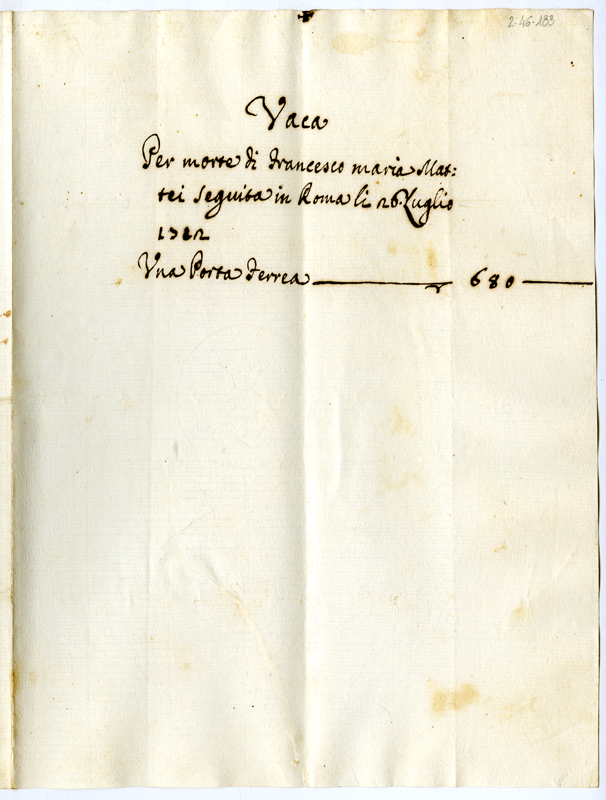 2-46-183
Vaca
Per morte di Francesco maria Mat:
tei Seguita in Roma li 26 Luglio
1712
Vna Porta Ferrea 680